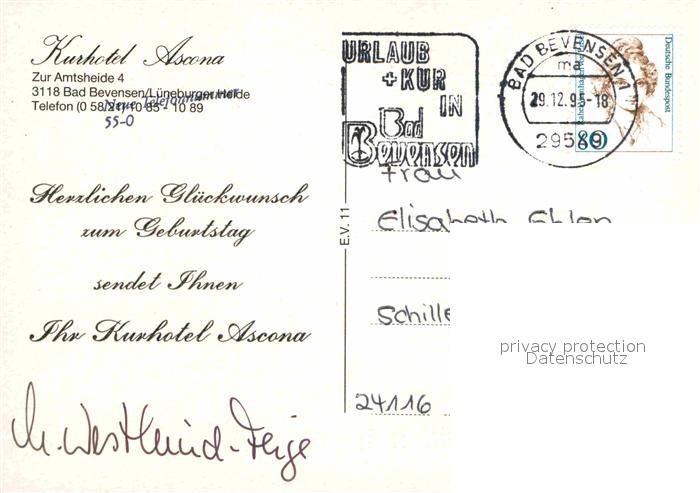 Kurhotel Ascona
Zur Amtsheide 4
3118 Bad Bevensen/Lüneburger Heide
Neue Telefonnummer
Telefon (0 58 21) 10 85 - 10 89
55-0
Herzlichen Glückwunsch
zum Geburtstag
sendet Ihnen
Ihr Kurhotel Ascona
E.V. 11
URLAUB
+ KUR
IN
Bad
Bevensen
BAD BEVENSEN 1
ma
29.12.95-18
29549
Deutsche Bundespost
80
Frau
Elisabeth
Schille
24116
privacy protection
Datenschutz